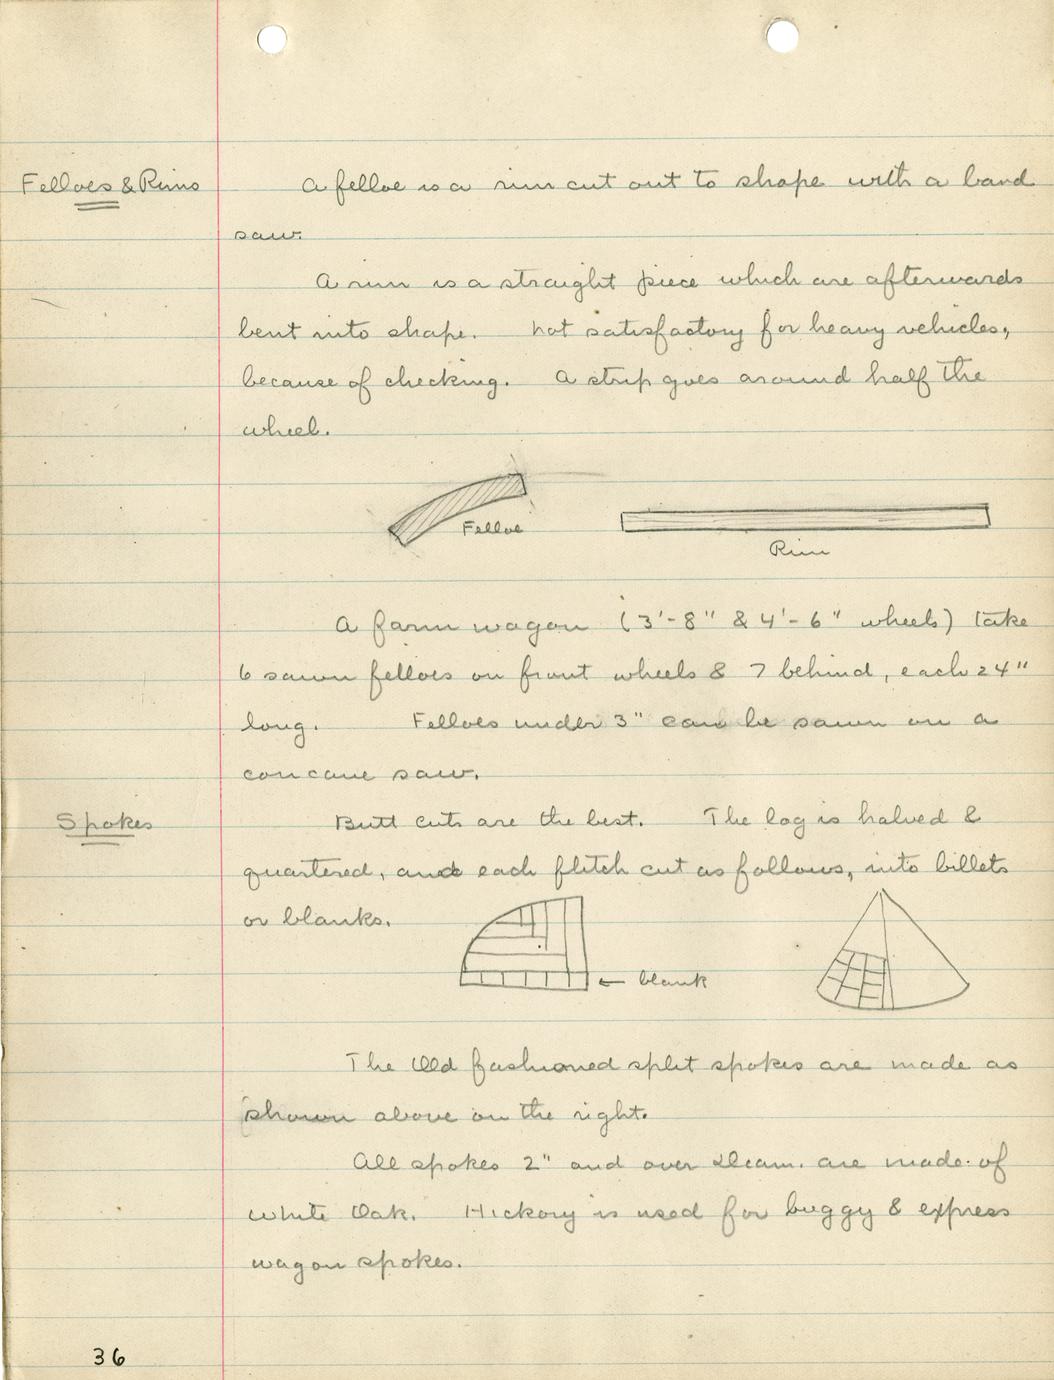 Felloes & Rims
A felloe is a rim cut out to shape with a band
saw.
A rim is a straight piece which are afterwards
bent into shape. Not satisfactory for heavy vehicles,
because of checking. A strip goes around half the
wheel.
Felloe
Rim
A farm wagon (3'-8" & 4'-6" wheels) take
6 sawn felloes on front wheels & 7 behind, each 24"
long. Felloes under 3" can be sawn on a
concave saw.
Spokes
Butt cuts are the best. The log is halved &
quartered, and each flitch cut as follows, into billets
or blanks.
← blank
The Old fashioned split spokes are made as
shown above on the right.
All spokes 2" and over Diam. are made of
white Oak. Hickory is used for buggy & express
wagon spokes.
36